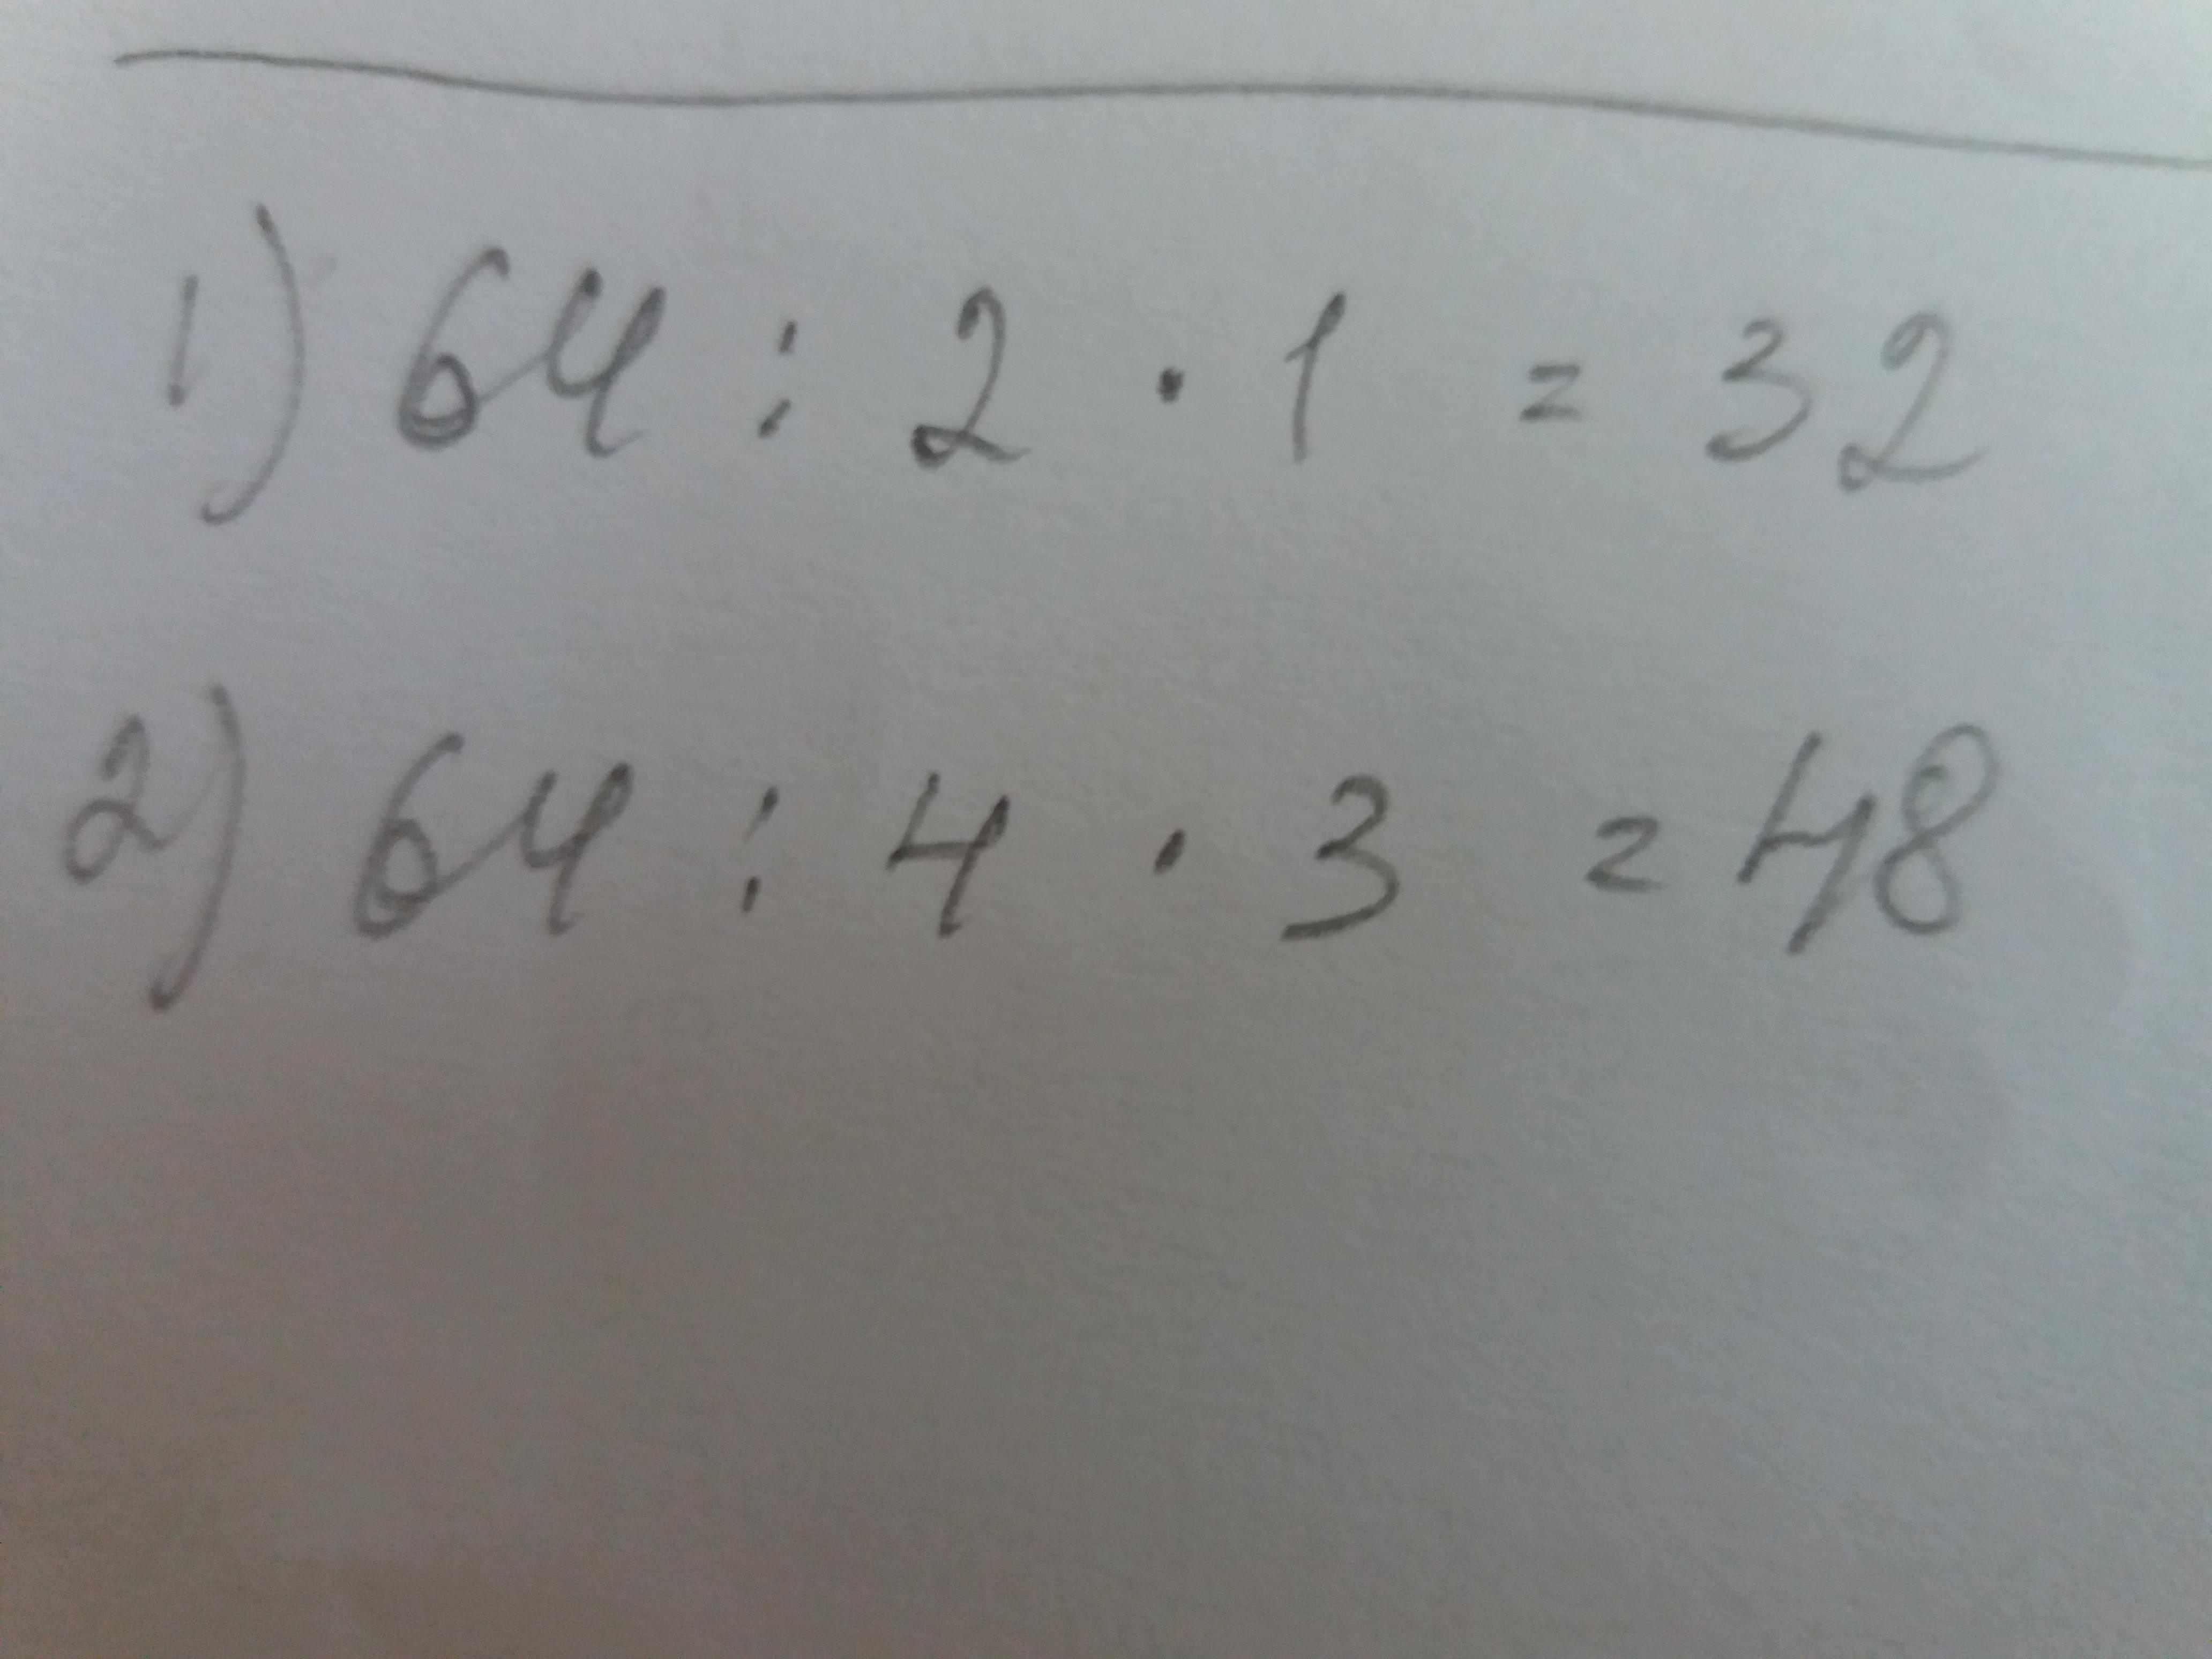 1) 64 : 2 · 1 = 32
2) 64 : 4 · 3 = 48